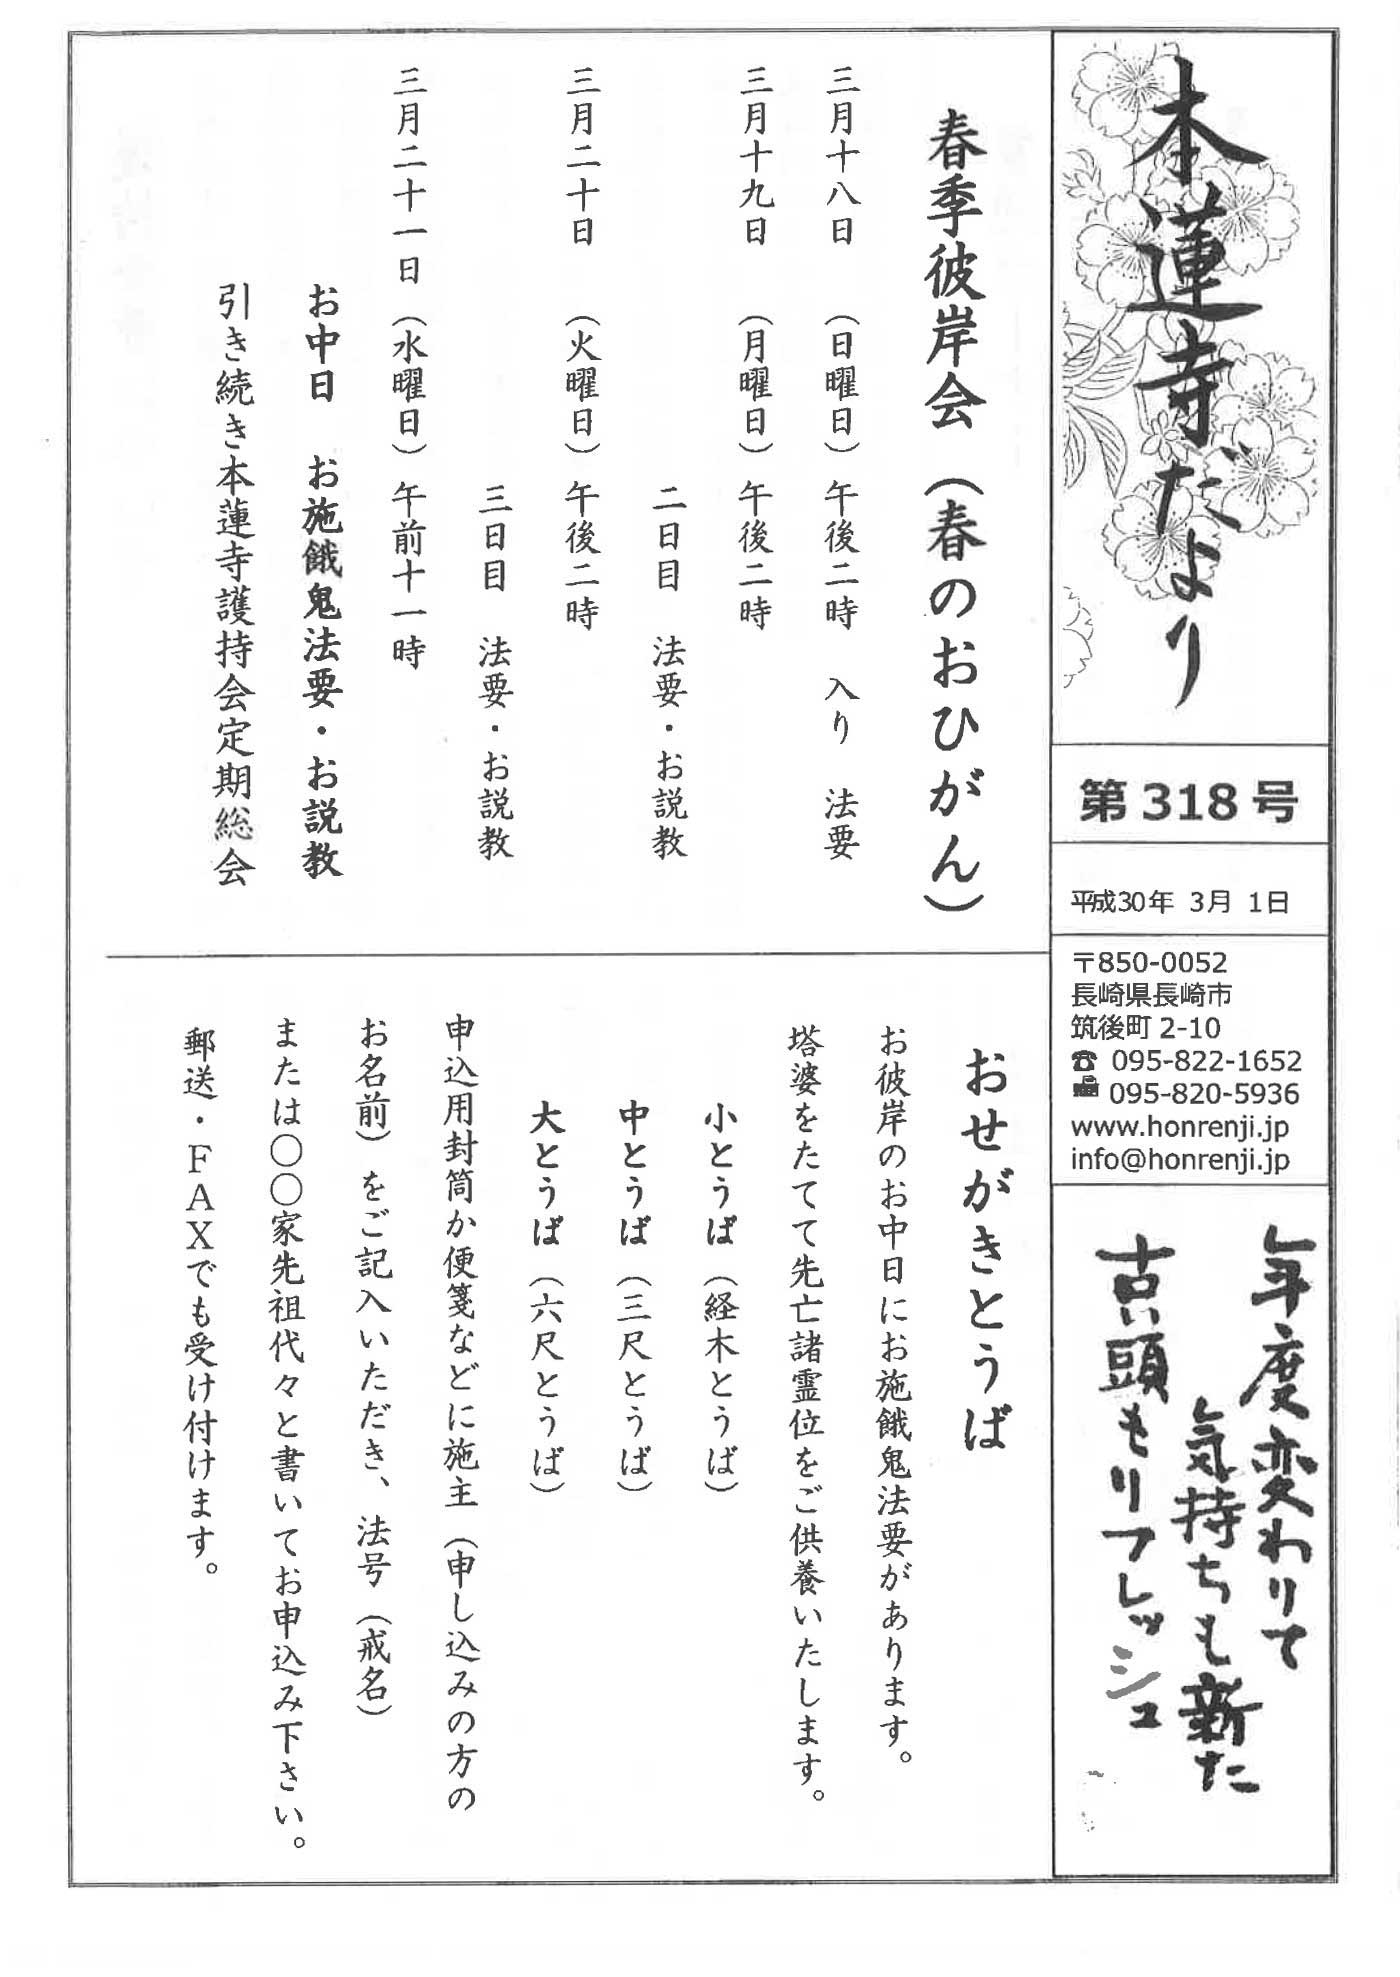 本蓮寺だより
第318号
平成30年 3月 1日
〒850-0052
長崎県長崎市
筑後町 2-10
☎ 095-822-1652
095-820-5936
www.honrenji.jp
info@honrenji.jp
年度変わりて
気持ちも新た
古い頭もリフレッシュ
春季彼岸会（春のおひがん）
三月十八日 （日曜日）午後二時 入り 法要
三月十九日 （月曜日）午後二時
二日目 法要・お説教
三月二十日 （火曜日）午後二時
三日目 法要・お説教
三月二十一日（水曜日）午前十一時
お中日 お施餓鬼法要・お説教
引き続き本蓮寺護持会定期総会
おせがきとうば
お彼岸のお中日にお施餓鬼法要があります。
塔婆をたてて先亡諸霊位をご供養いたします。
小とうば（経木とうば）
中とうば（三尺とうば）
大とうば（六尺とうば）
申込用封筒か便箋などに施主（申し込みの方の
お名前）をご記入いただき、法号（戒名）
または〇〇家先祖代々と書いてお申込み下さい。
郵送・ＦＡＸでも受け付けます。